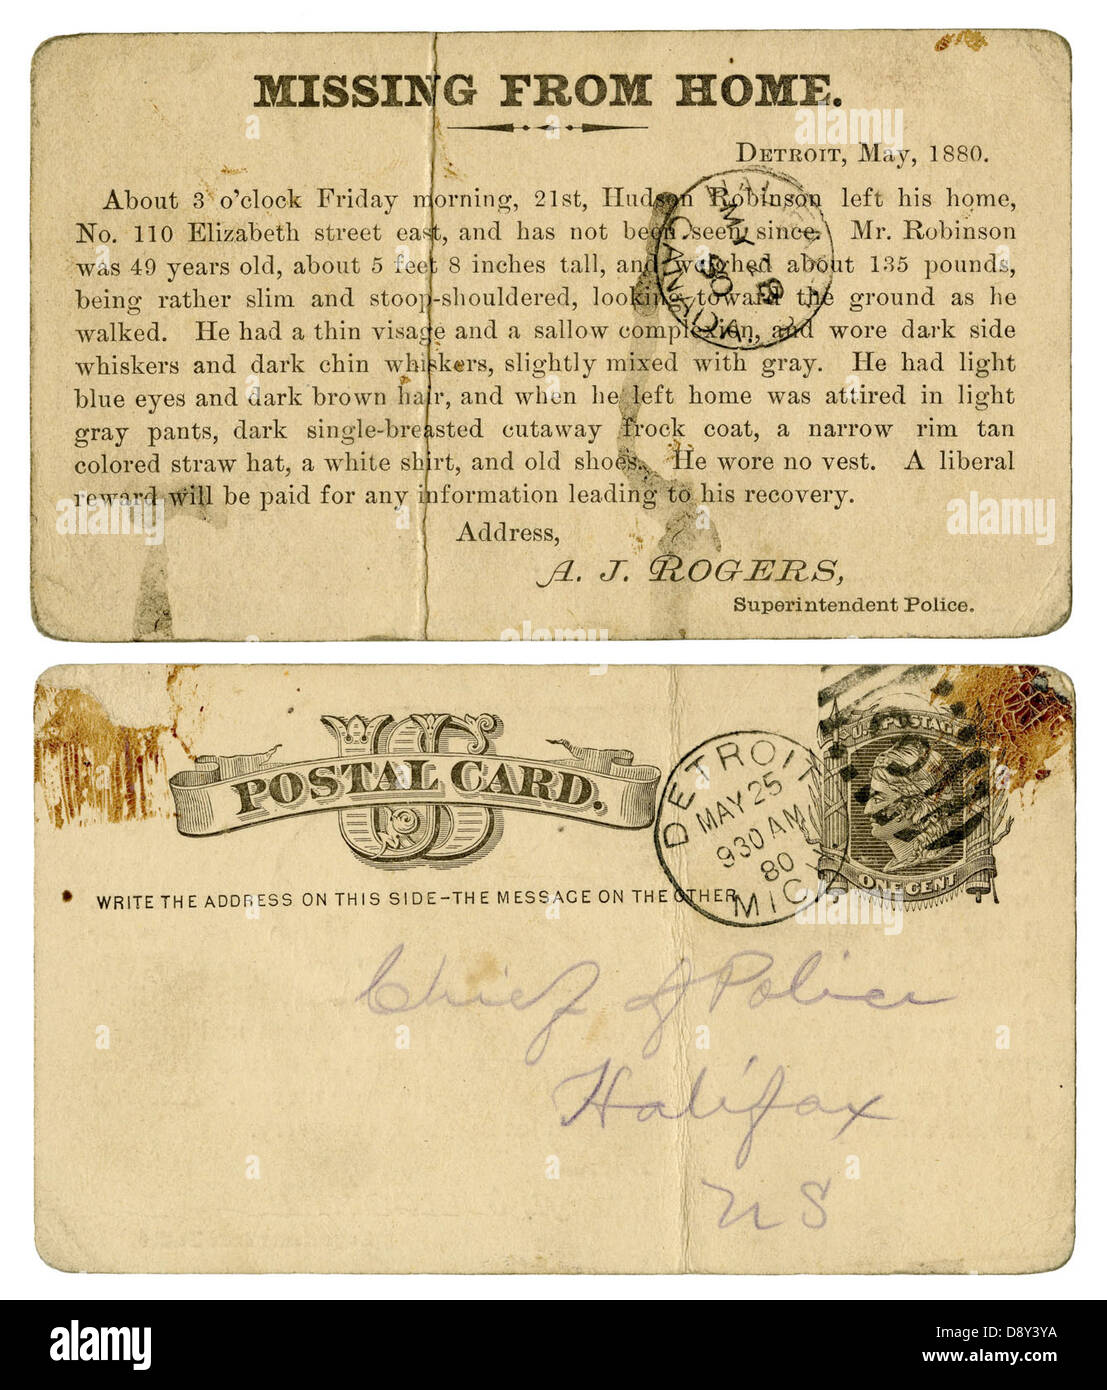 MISSING FROM HOME.
DETROIT, May, 1880.
About 3 o'clock Friday morning, 21st, Hudson Robinson left his home,
No. 110 Elizabeth street east, and has not been seen since. Mr. Robinson
was 49 years old, about 5 feet 8 inches tall, and weighed about 135 pounds,
being rather slim and stoop-shouldered, looking toward the ground as he
walked. He had a thin visage and a sallow complexion, and wore dark side
whiskers and dark chin whiskers, slightly mixed with gray. He had light
blue eyes and dark brown hair, and when he left home was attired in light
gray pants, dark single-breasted cutaway frock coat, a narrow rim tan
colored straw hat, a white shirt, and old shoes. He wore no vest. A liberal
reward will be paid for any information leading to his recovery.
Address,
A. J. ROGERS,
Superintendent Police.
US
POSTAL CARD.
DETROIT
MAY 25
930 AM
80
MICH
U.S. POSTAGE
ONE CENT
WRITE THE ADDRESS ON THIS SIDE-THE MESSAGE ON THE OTHER
Chief of Police
Halifax
NS
alamy
Image ID: D8Y3YA
www.alamy.com